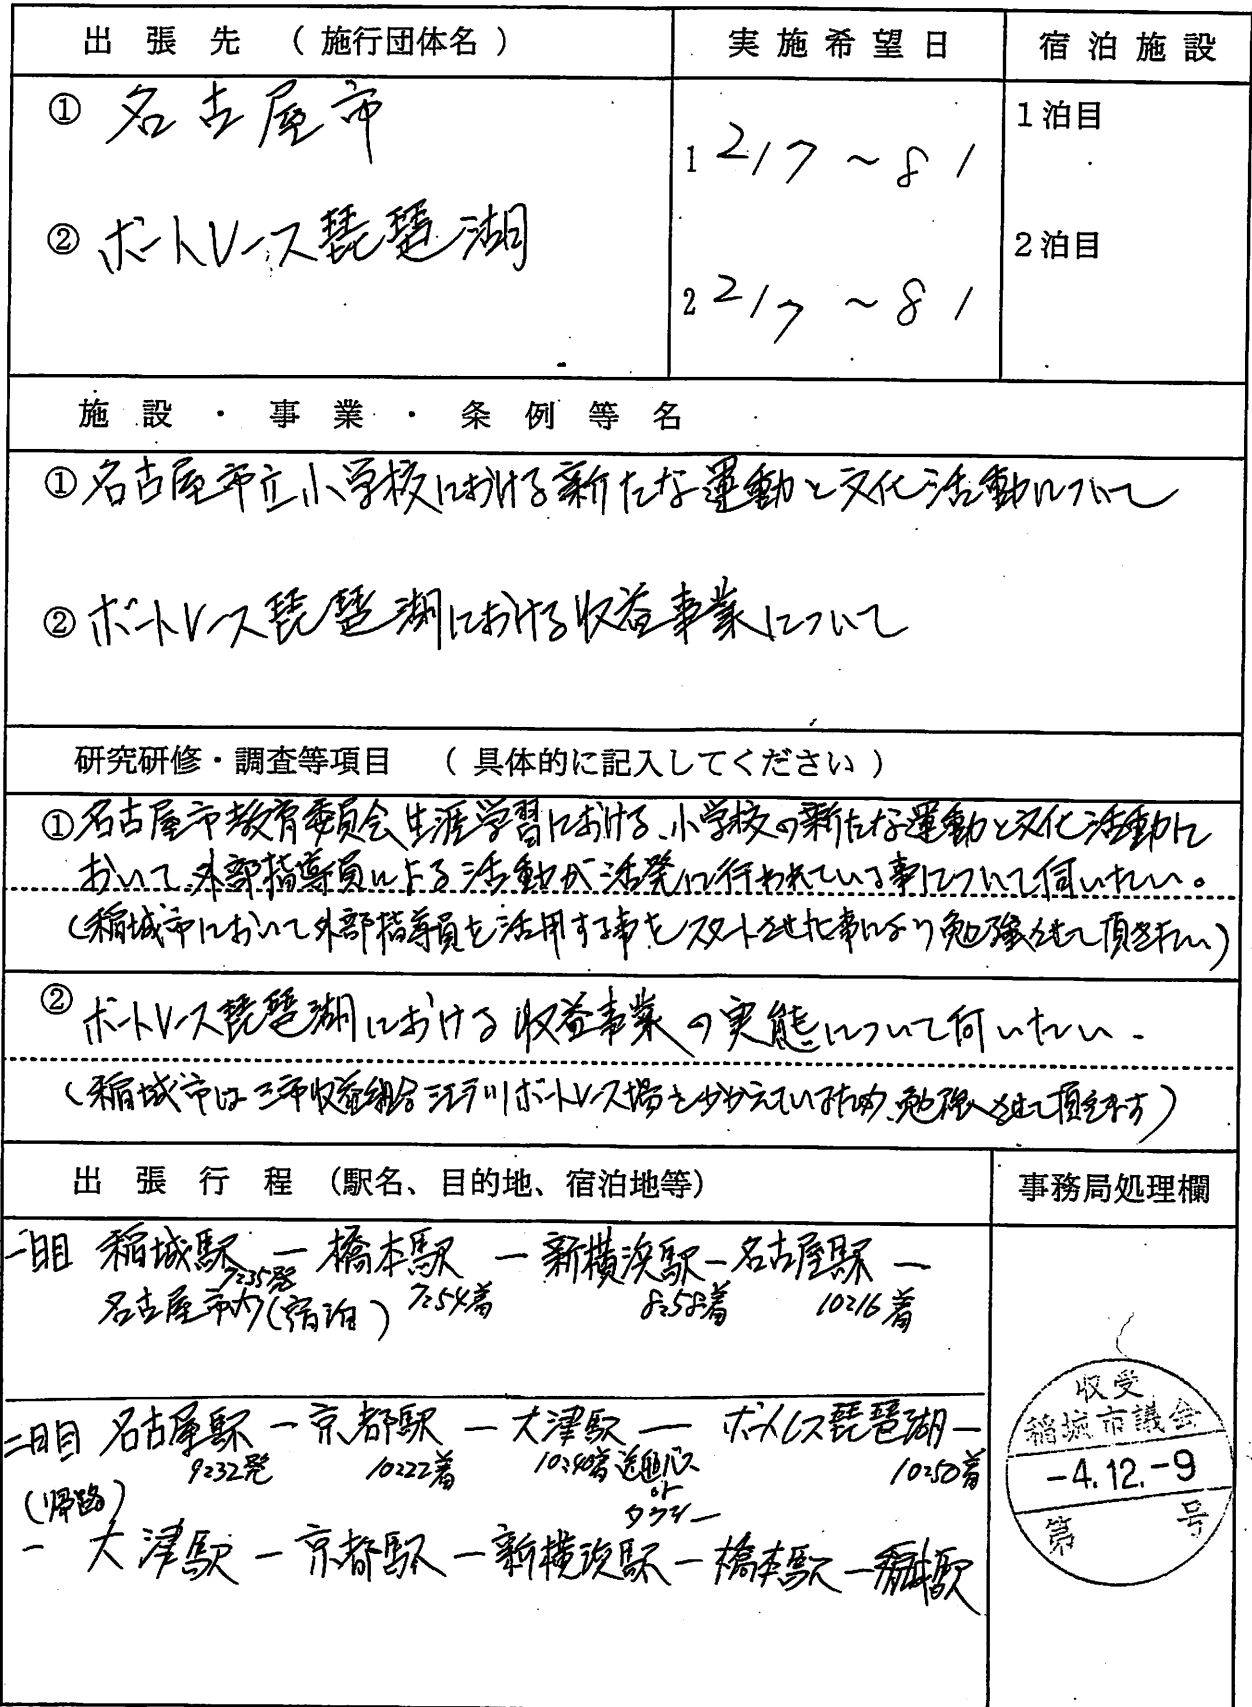 出張先（施行団体名） 実施希望日 宿泊施設
① 名古屋市 1泊目
1 2/7 ～ 8 /
② ボートレース琵琶湖 2泊目
2 2/7 ～ 8 /
施設・事業・条例等名
① 名古屋市立小学校における新たな運動と文化活動について
② ボートレース琵琶湖における収益事業について
研究研修・調査等項目 （具体的に記入してください）
① 名古屋市教育委員会生涯学習における、小学校の新たな運動と文化活動に
おいて、外部指導員による活動が活発に行われている事について伺いたい。
(稲城市において外部指導員を活用する事をスタートさせた事により勉強させて頂きたい)
② ボートレース琵琶湖における収益事業の実態について伺いたい.
(稲城市は三市収益組合江戸川ボートレース場をかかえているため、勉強させて頂きます)
出張行程（駅名、目的地、宿泊地等） 事務局処理欄
一日目 稲城駅 ー 橋本駅 ー 新横浜駅 ー 名古屋駅 ー
7:35発 7:54着 8:58着 10:16着
名古屋市内(宿泊)
二日目 名古屋駅 ー 京都駅 ー 大津駅 ー ボートレス琵琶湖 ー
9:32発 10:22着 10:40着 送迎バス or タクシー 10:50着
(帰路)
ー 大津駅 ー 京都駅 ー 新横浜駅 ー 橋本駅 ー 稲城駅
収受
稲城市議会
-4.12.-9
第 号